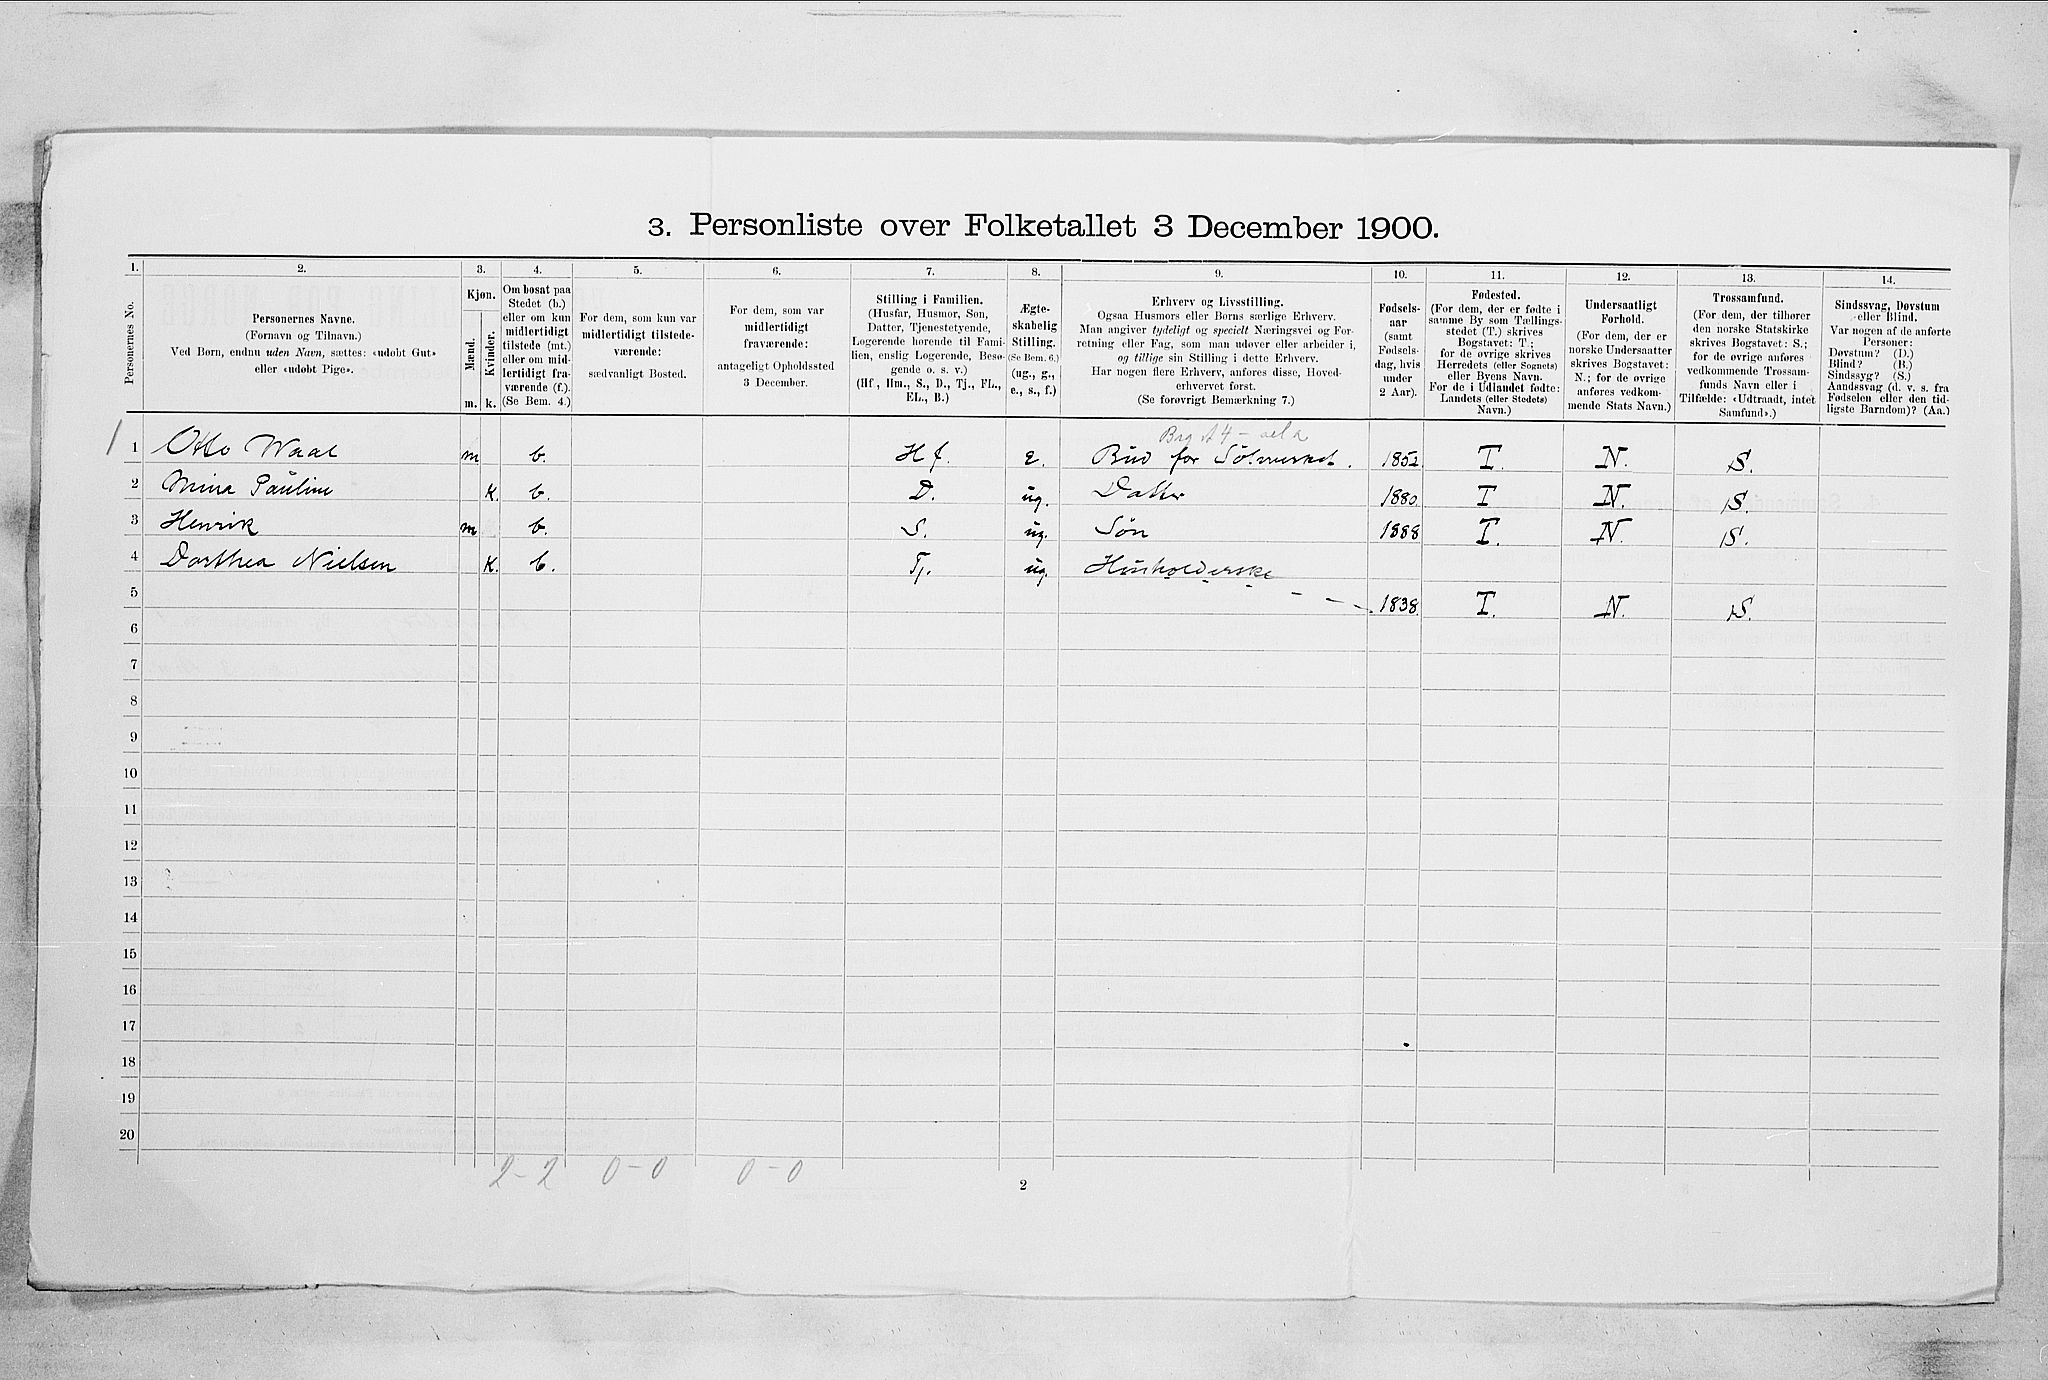 3. Personliste over Folketallet 3 December 1900.
1. 2. 3. 4. 5. 6. 7. 8. 9. 10. 11. 12. 13. 14.
Personernes No.
Personernes Navne.
(Fornavn og Tilnavn.)
Ved Børn, endnu uden Navn, sættes: «udøbt Gut»
eller «udøbt Pige».
Kjøn.
Mænd.
Kvinder.
m. k.
Om bosat paa
Stedet (b.)
eller om kun
midlertidigt
tilstede (mt.)
eller om mid-
lertidigt fra-
værende (f.).
(Se Bem. 4.)
For dem, som kun var
midlertidigt tilstede-
værende:
sædvanligt Bosted.
For dem, som var
midlertidigt
fraværende:
antageligt Opholdssted
3 December.
Stilling i Familien.
(Husfar, Husmor, Søn,
Datter, Tjenestetyende,
Logerende hørende til Fami-
lien, enslig Logerende, Besø-
gende o. s. v.)
(Hf., Hm., S., D., Tj., FL.,
EL., B.)
Ægte-
skabelig
Stilling.
(Se Bem. 6.)
(ug., g.,
e., s., f.)
Erhverv og Livsstilling.
Ogsaa Husmors eller Børns særlige Erhverv.
Man angiver tydeligt og specielt Næringsvei og For-
retning eller Fag, som man udøver eller arbeider i,
og tillige sin Stilling i dette Erhverv.
Har nogen flere Erhverv, anføres disse, Hoved-
erhvervet først.
(Se forøvrigt Bemærkning 7.)
Fødsels-
aar
(samt
Fødsels-
dag, hvis
under
2 Aar).
Fødested.
(For dem, der er fødte i
samme By som Tællings-
stedet (T.) skrives
Bogstavet: T.;
for de øvrige skrives
Herredets (eller Sognets)
eller Byens Navn.
For de i Udlandet fødte:
Landets (eller Stedets)
Navn.)
Undersaatligt
Forhold.
(For dem, der er
norske Undersaatter
skrives Bogstavet:
N.; for de øvrige
anføres vedkom-
mende Stats Navn.)
Trossamfund.
(For dem, der tilhører
den norske Statskirke
skrives Bogstavet: S.;
for de øvrige anføres
vedkommende Trossam-
funds Navn eller i
Tilfælde: «Udtraadt, intet
Samfund».)
Sindssvag, Døvstum
eller Blind.
Var nogen af de anførte
Personer:
Døvstum? (D.)
Blind? (B.)
Sindssyg? (S.)
Aandssvag (d. v. s. fra
Fødselen eller den tid-
ligste Barndom)? (Aa.)
1 Otto Waal m b. Hf. e. Bud for Sølvverket. 1852 T. N. S.
2 Mina Pauline k. b. D. ug. Datter 1880. T N. S.
3 Henrik m b. S. ug. Søn 1888 T. N. S.
4 Dorthea Nielsen k. b. Tj. ug. Husholderske
5 1838. T. N. S.
6
7
8
9
10
11
12
13
14
15
16
17
18
19
20
2-2 0-0 0-0
2